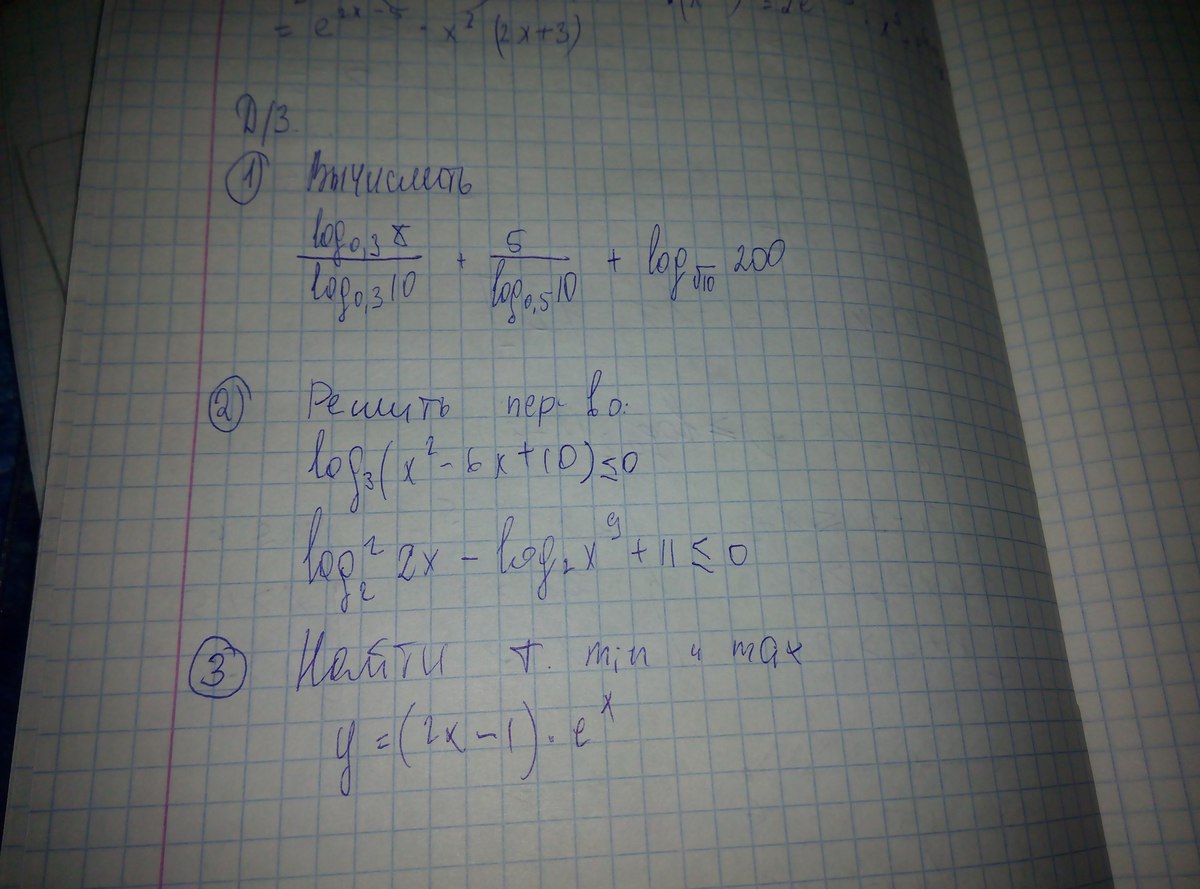 = e^{2x-5} · x² (2x+3)
Д/З.
① Вычислить
\frac{log_{0,3} 8}{log_{0,3} 10} + \frac{5}{log_{0,5} 10} + log_{√10} 200
② Решить нер-во:
log₃(x² - 6x + 10) ≤ 0
log₂² 2x - log₂ x⁹ + 11 ≤ 0
③ Найти т. min и max
y = (2x - 1) · e^x